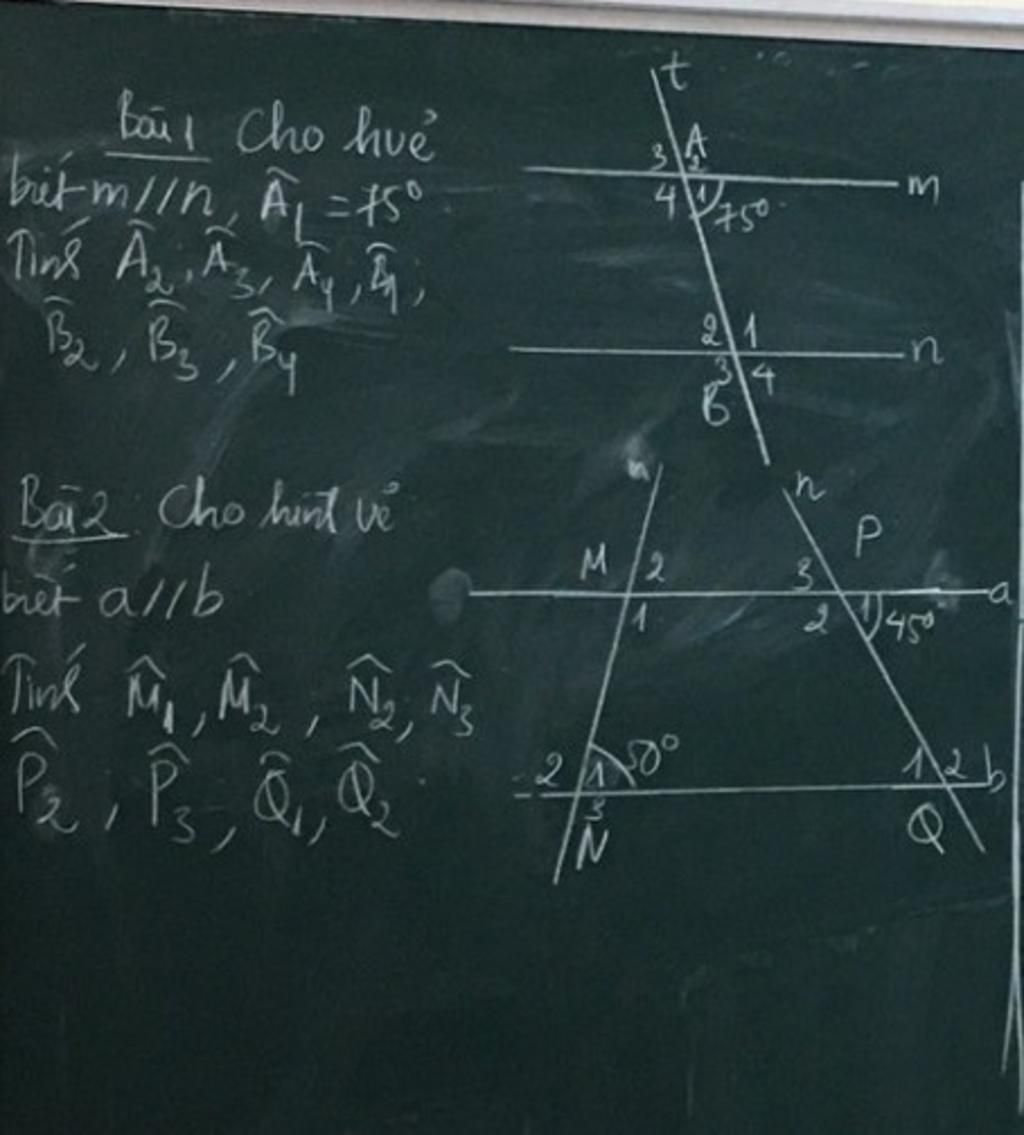 Bài 1 Cho h vẽ
biết m//n, Â₁ = 75°
Tính Â₂, Â₃, Â₄, B̂₁,
B̂₂, B̂₃, B̂₄
t
3 A 2
m
4 1 75°
2 1
n
3 4
B
Bài 2 Cho hình vẽ
biết a//b
Tính M̂₁, M̂₂, N̂₂, N̂₃
P̂₂, P̂₃, Q̂₁, Q̂₂
n
P
M 2 3
a
1 2 1 45°
2 1 50° 1 2 b
3
N Q